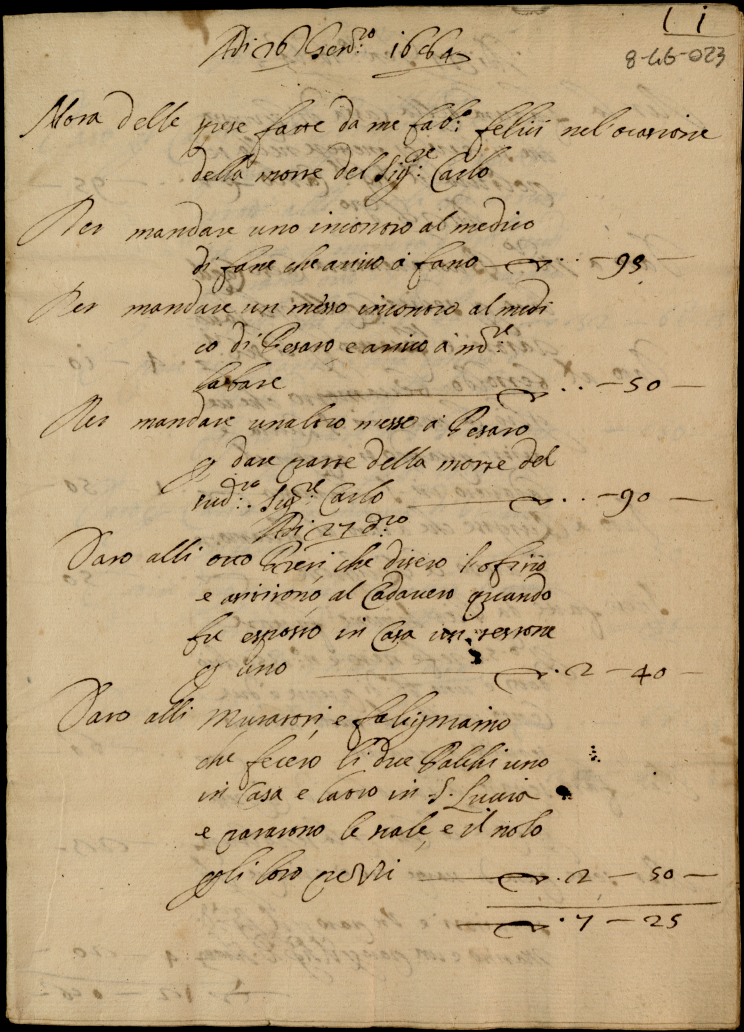 11
8-46-023
Adi 26 Genro: 1664
Nota delle spese fatte da me fabo: felici nel ocasione
della morte del Sigre: Carlo
Per mandare uno incontro al medico
di fane che arivo à fano ·· — 95 —
Per mandare un messo incontro al medi
co di Pesaro e arivo à
labate ·· — 50 —
Per mandare un altro messo à Pesaro
p dare parte della morte del
sudro: Sigre: Carlo ·· — 90 —
Adi 27 dto
Dato alli otto Preti che disero l'ofitio
e asisirono al Cadavero quando
fu esposto in Casa un testone
p uno · 2 — 40 —
Dato alli Muratori e falegniamo
che fecero li due Palchi uno
in Casa e latro in S. Lucia
e pararono le sale, e il nolo
p li loro · 2 — 50 —
· 7 — 25